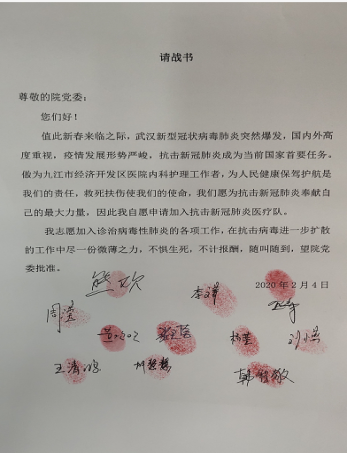 请战书
尊敬的院党委：
您们好！
值此新春来临之际，武汉新型冠状病毒肺炎突然爆发，国内外高
度重视，疫情发展形势严峻，抗击新冠肺炎成为当前国家首要任务。
做为九江市经济开发区医院内科护理工作者，为人民健康保驾护航是
我们的责任，救死扶伤使我们的使命，我们愿为抗击新冠肺炎奉献自
己的最大力量，因此我自愿申请加入抗击新冠肺炎医疗队。
我志愿加入诊治病毒性肺炎的各项工作，在抗击病毒进一步扩散
的工作中尽一份微薄之力，不惧生死，不计报酬，随叫随到，望院党
委批准。
2020年2月4日
熊欢